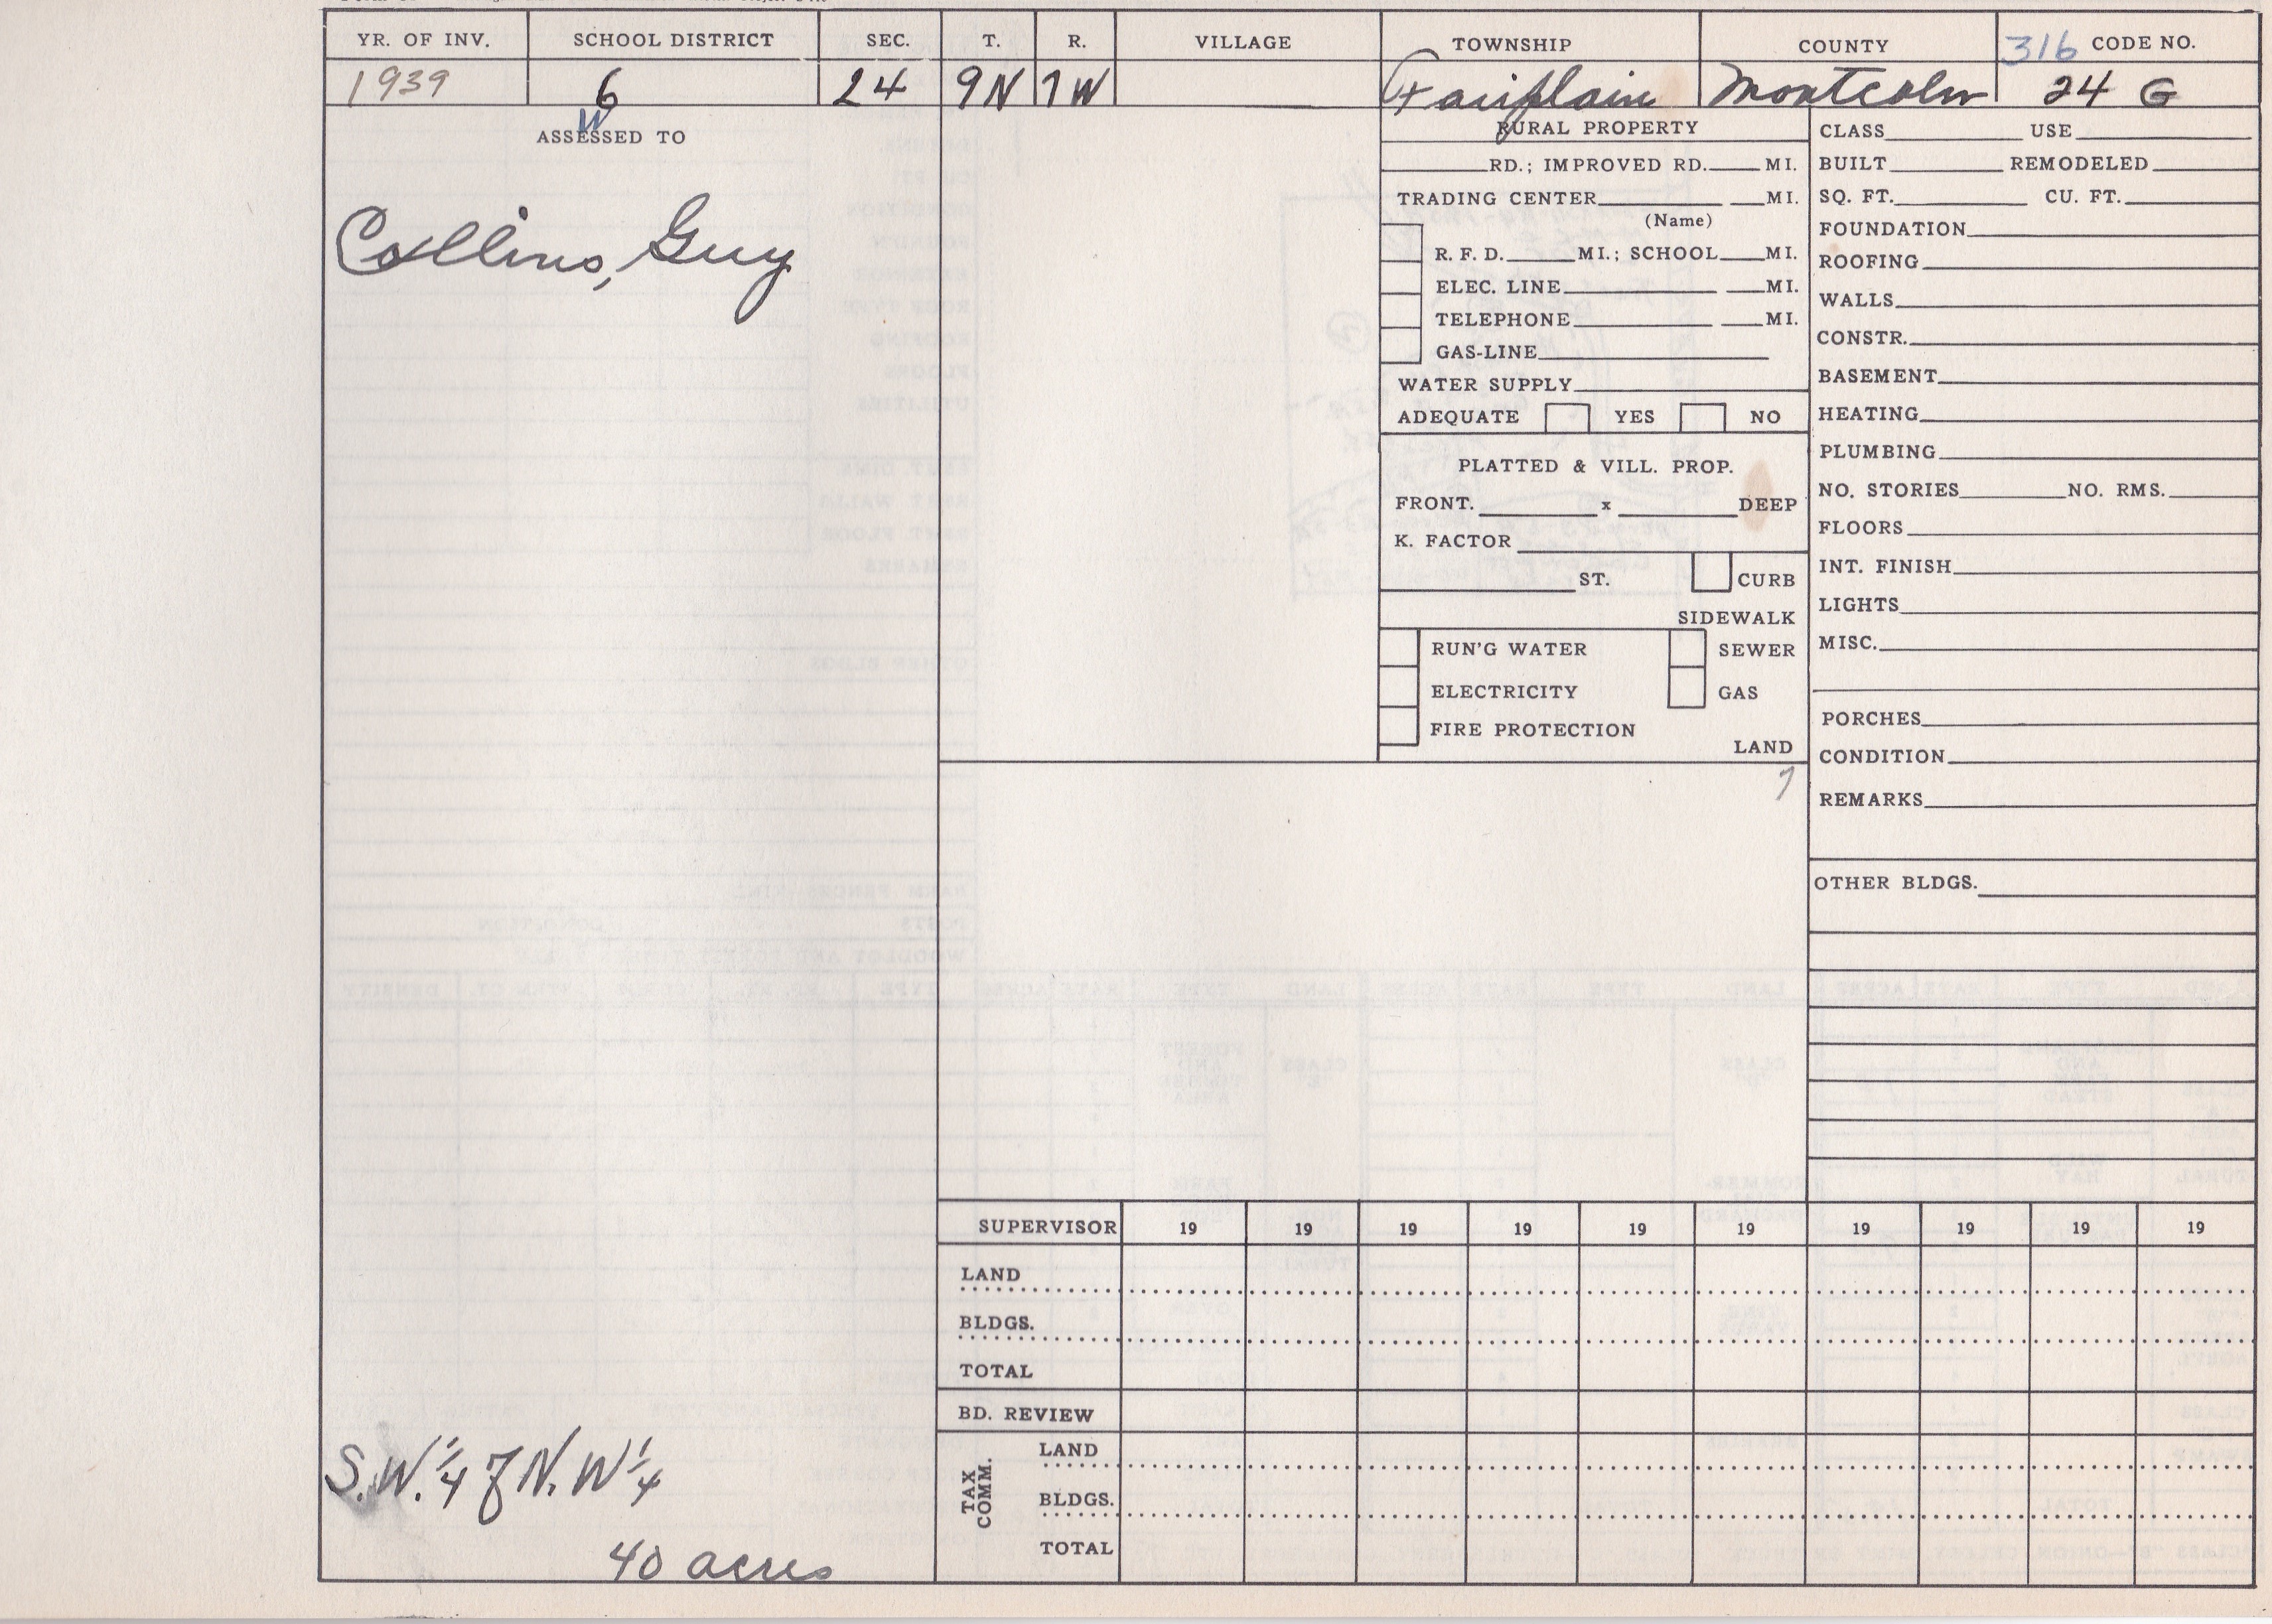 YR. OF INV. SCHOOL DISTRICT SEC. T. R. VILLAGE TOWNSHIP COUNTY 316 CODE NO.
1939 6 24 9N 7W Fairplain Montcalm 24 G
W
ASSESSED TO
Collins, Guy
S.W.¼ of N.W¼
40 acres
RURAL PROPERTY
RD.; IMPROVED RD. MI.
TRADING CENTER MI.
(Name)
R. F. D. MI.; SCHOOL MI.
ELEC. LINE MI.
TELEPHONE MI.
GAS-LINE
WATER SUPPLY
ADEQUATE YES NO
PLATTED & VILL. PROP.
FRONT. x DEEP
K. FACTOR
ST. CURB
SIDEWALK
RUN'G WATER SEWER
ELECTRICITY GAS
FIRE PROTECTION
LAND
7
CLASS USE
BUILT REMODELED
SQ. FT. CU. FT.
FOUNDATION
ROOFING
WALLS
CONSTR.
BASEMENT
HEATING
PLUMBING
NO. STORIES NO. RMS.
FLOORS
INT. FINISH
LIGHTS
MISC.
PORCHES
CONDITION
REMARKS
OTHER BLDGS.
SUPERVISOR 19 19 19 19 19 19 19 19 19 19
LAND
BLDGS.
TOTAL
BD. REVIEW
TAX COMM.
LAND
BLDGS.
TOTAL